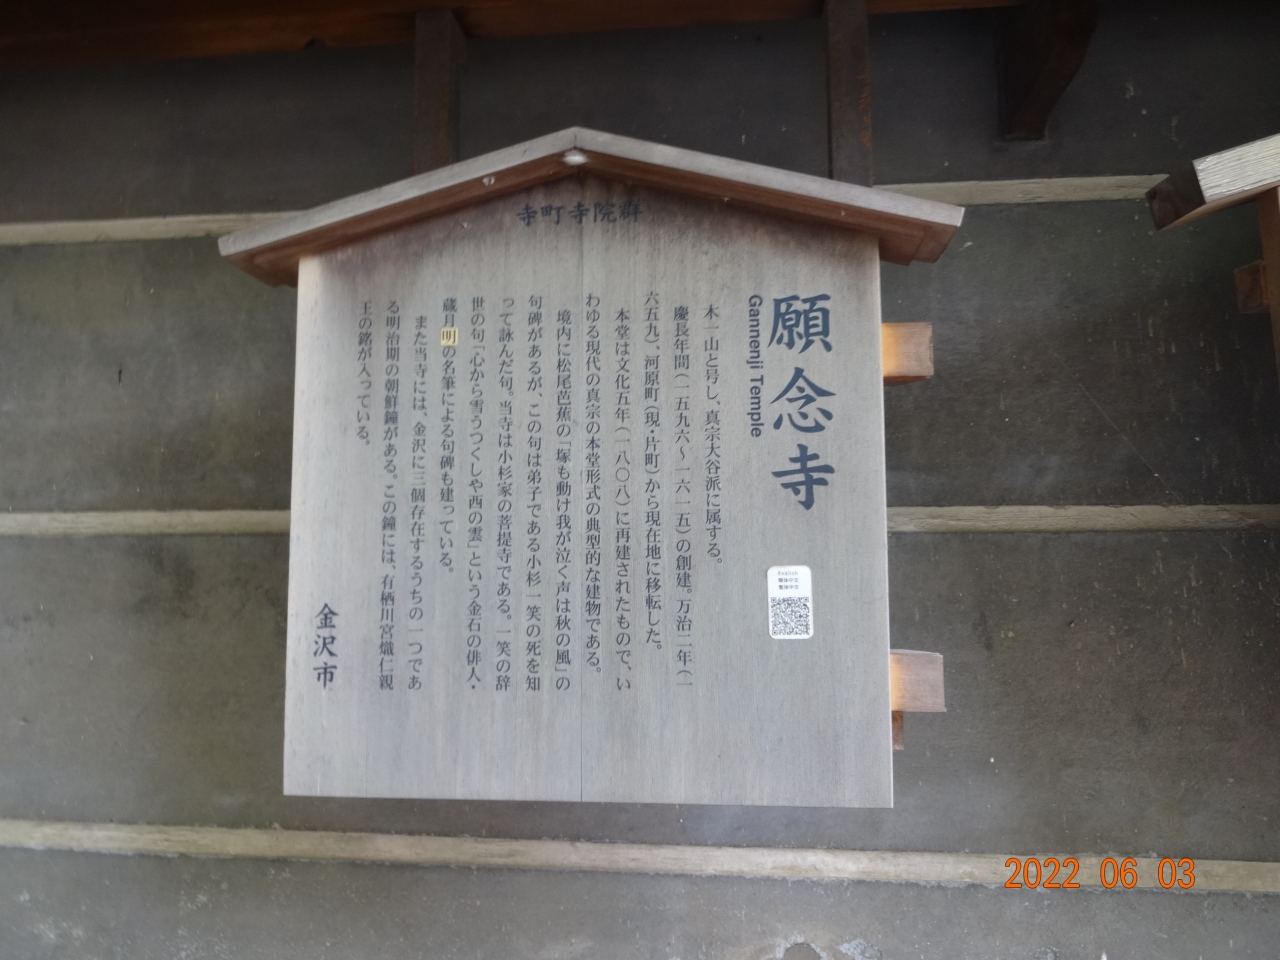 寺町寺院群
願念寺
Gannenji Temple
木一山と号し、真宗大谷派に属する。
慶長年間(一五九六〜一六一五)の創建。万治二年(一
六五九)、河原町(現・片町)から現在地に移転した。
本堂は文化五年(一八〇八)に再建されたもので、い
わゆる現代の真宗の本堂形式の典型的な建物である。
境内に松尾芭蕉の「塚も動け我が泣く声は秋の風」の
句碑があるが、この句は弟子である小杉一笑の死を知
って詠んだ句。当寺は小杉家の菩提寺である。一笑の辞
世の句「心から雪うつくしや西の雲」という金石の俳人・
蔵月明の名筆による句碑も建っている。
また当寺には、金沢に三個存在するうちの一つであ
る明治期の朝鮮鐘がある。この鐘には、有栖川宮熾仁親
王の銘が入っている。
金沢市
English
简体中文
繁体中文
2022 06 03